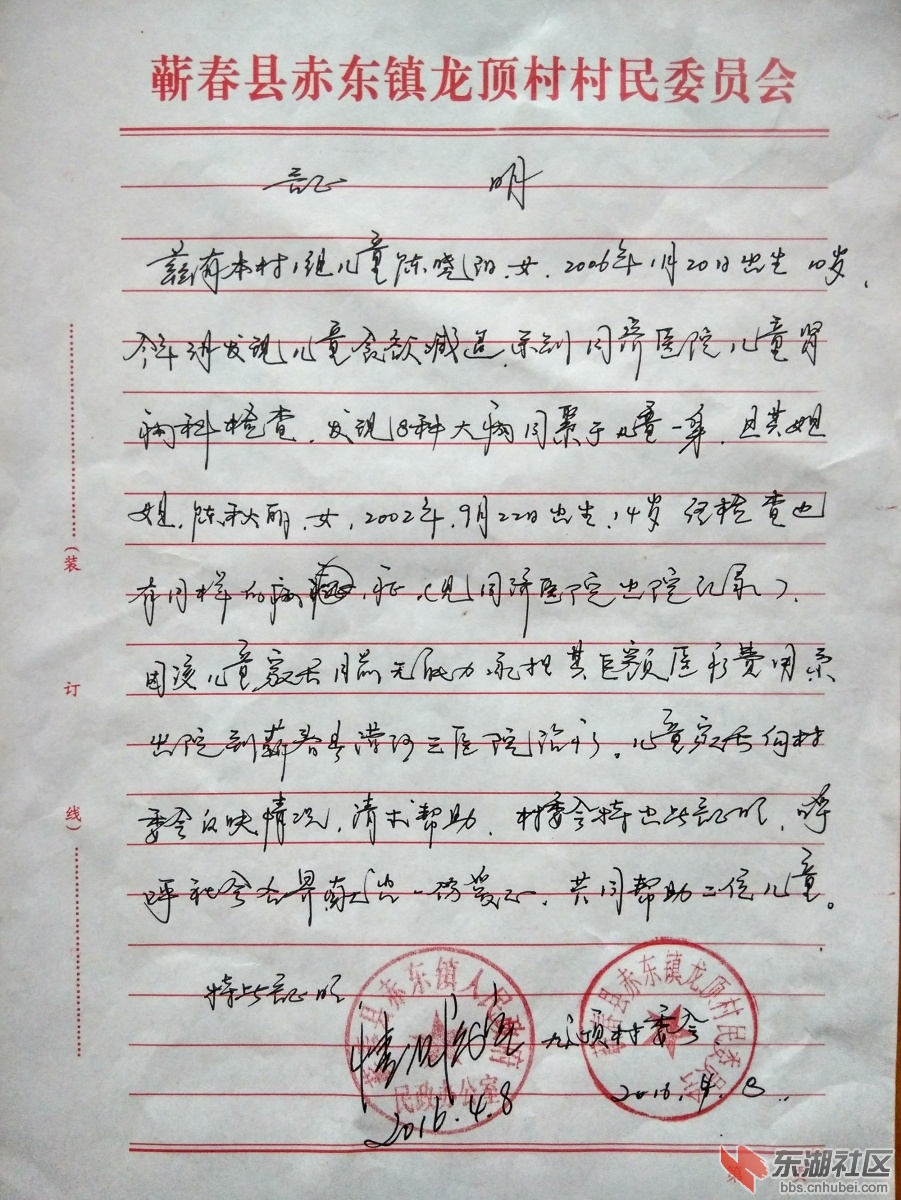 蕲春县赤东镇龙顶村村民委员会
证 明
兹有本村1组儿童陈晓阳，女，2006年1月20日出生10岁，
今年初发现儿童食欲减退，来到同济医院儿童肾
病科检查，发现8种大病同聚于儿童一身，且其姐
姐，陈秋丽，女，2002年，9月22日出生，14岁经检查也
有同样的病，症（见同济医院出院记录），
因该儿童家长目前无能力承担其巨额医疗费用系
出院到蕲春县漕河三医院治疗。儿童家长向村
委会反映情况，请求帮助，村委会特出此证明，呼
呼社会各界献出一份爱心，共同帮助二位儿童。
特此证明
情况属实
龙顶村委会
2016.4.8
2016.4.8
蕲春县赤东镇人民政府
民政办公室
蕲春县赤东镇龙顶村村民委员会
（装
订
线）
东湖社区
bbs.cnhubei.com